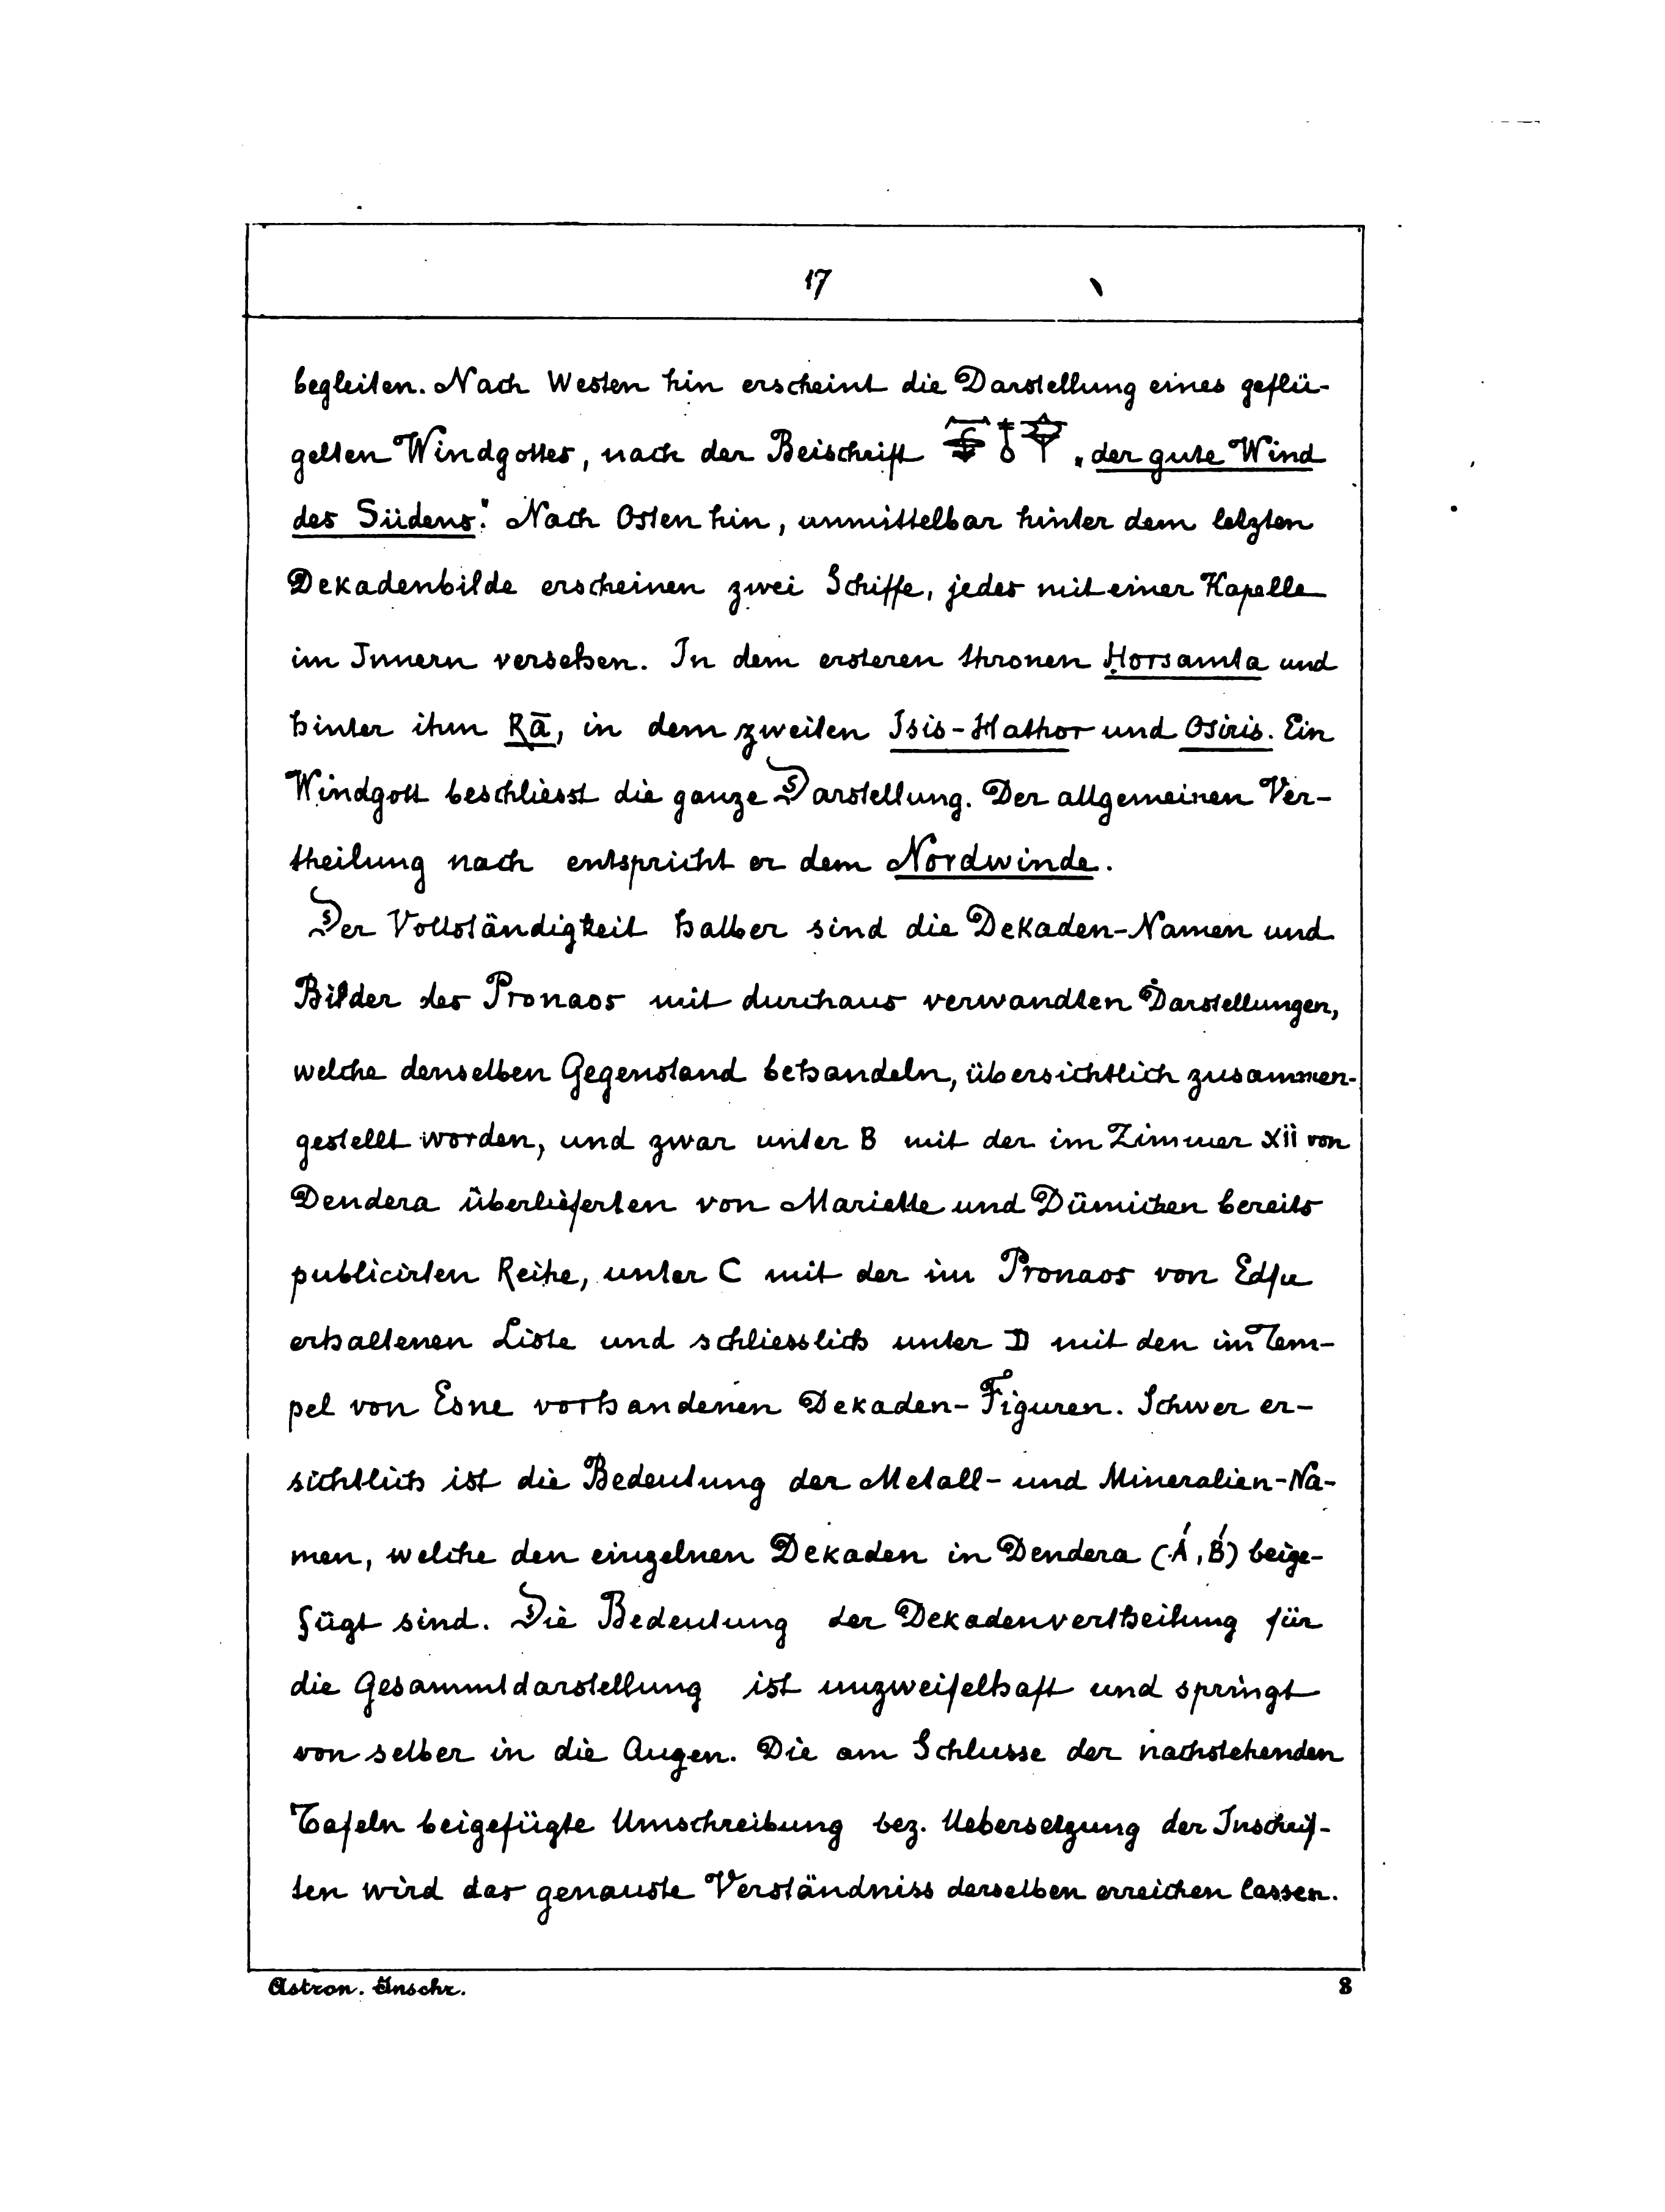 17
begleiten. Nach Westen hin erscheint die Darstellung eines geflü-
gelten Windgottes, nach der Beischrift „der gute Wind
des Südens." Nach Osten hin, unmittelbar hinter dem letzten
Dekadenbilde erscheinen zwei Schiffe, jedes mit einer Kapelle
im Innern versehen. In dem ersteren thronen Ḥorsamta und
hinter ihm Rā, in dem zweiten Isis-Hathor und Osiris. Ein
Windgott beschliesst die ganze Darstellung. Der allgemeinen Ver-
theilung nach entspricht er dem Nordwinde.
Der Vollständigkeit halber sind die Dekaden-Namen und
Bilder des Pronaos mit durchaus verwandten Darstellungen,
welche denselben Gegenstand behandeln, übersichtlich zusammen-
gestellt worden, und zwar unter B mit der im Zimmer XII von
Dendera überlieferten von Mariette und Dümichen bereits
publicirten Reihe, unter C mit der im Pronaos von Edfu
erhaltenen Liste und schliesslich unter D mit den im Tem-
pel von Esne vorhandenen Dekaden-Figuren. Schwer er-
sichtlich ist die Bedeutung der Metall- und Mineralien-Na-
men, welche den einzelnen Dekaden in Dendera (A', B') beige-
fügt sind. Die Bedeutung der Dekadenvertheilung für
die Gesammtdarstellung ist unzweifelhaft und springt
von selber in die Augen. Die am Schlusse der nachstehenden
Tafeln beigefügte Umschreibung bez. Uebersetzung der Inschrif-
ten wird das genauste Verständniss derselben erreichen lassen.
Astron. Inschr. 8